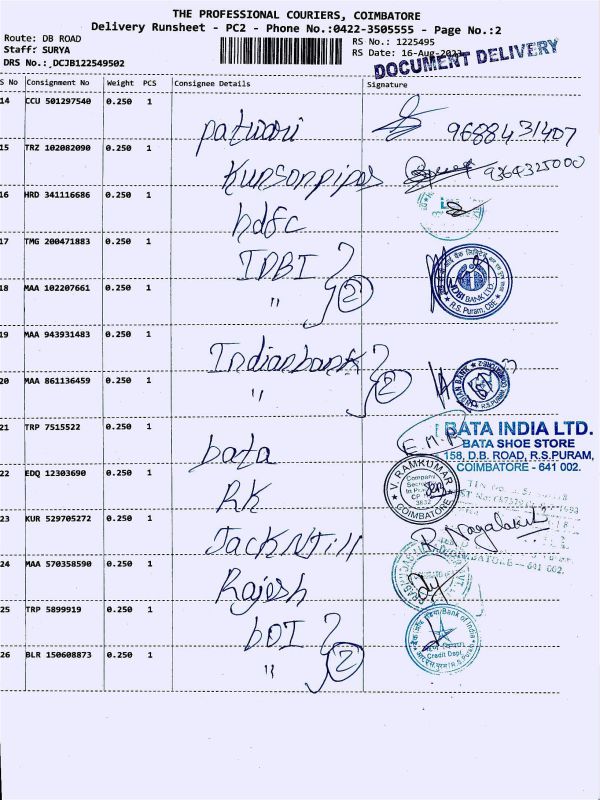 THE PROFESSIONAL COURIERS, COIMBATORE
Delivery Runsheet - PC2 - Phone No.:0422-3505555 - Page No.:2
Route: DB ROAD
Staff: SURYA
DRS No.:_DCJB122549502
RS No.: 1225495
RS Date: 16-Aug-2023
DOCUMENT DELIVERY
S No Consignment No Weight PCS Consignee Details Signature
14 CCU 501297540 0.250 1
patwari 9688431407
15 TRZ 102082090 0.250 1
Kunsonpipes 9364325000
16 HRD 341116686 0.250 1
hdfc
17 TMG 200471883 0.250 1
IDBI
IDBI BANK LTD.
R.S. Puram, CBE
18 MAA 102207661 0.250 1
" 2
19 MAA 943931483 0.250 1
Indianbank
INDIAN BANK
20 MAA 861136459 0.250 1
" 2
21 TRP 7515522 0.250 1
bata
BATA INDIA LTD.
BATA SHOE STORE
158, D.B. ROAD, R.S.PURAM,
COIMBATORE - 641 002.
22 EDQ 12303690 0.250 1
RK
V. RAMKUMAR
Company
COIMBATORE
23 KUR 529705272 0.250 1
JackNJill
R. Nagalakshmi
24 MAA 570358590 0.250 1
Rajesh
25 TRP 5899919 0.250 1
bOI
Bank of India
Credit Dept
26 BLR 150608873 0.250 1
" 2